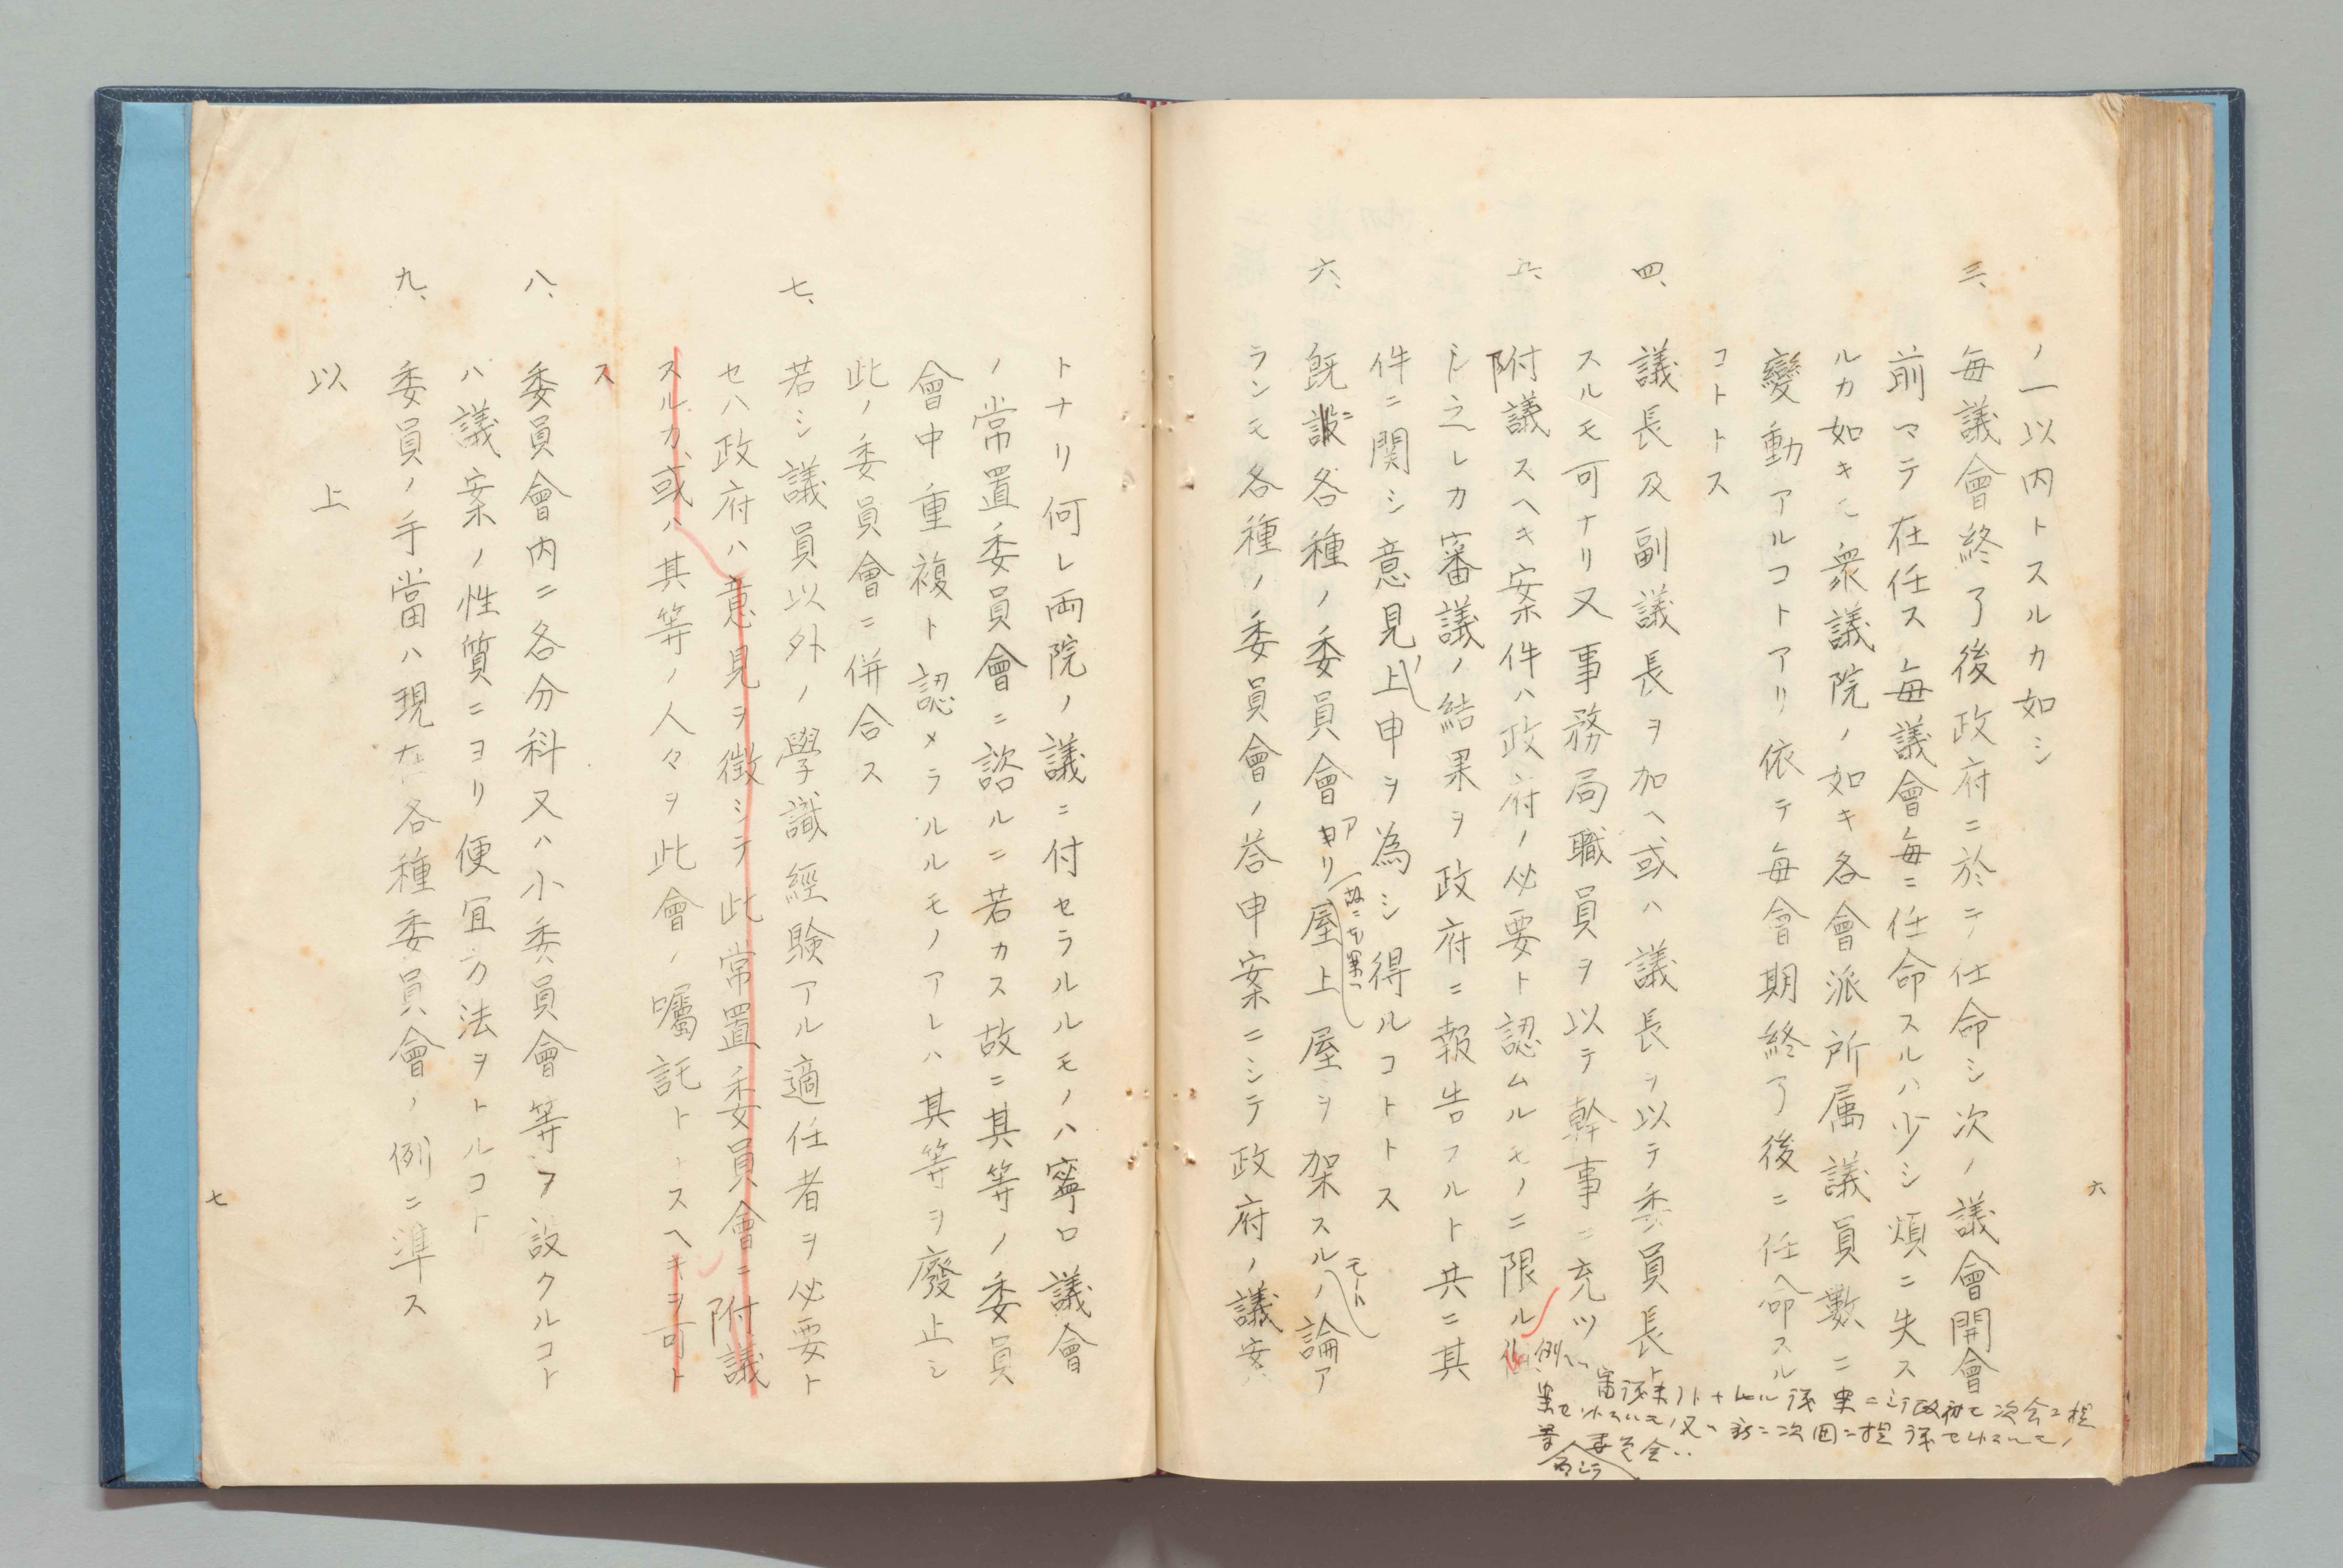 ノ一以内トスルカ如シ
三、毎議會終了後政府ニ於テ任命シ次ノ議會開會
前マテ在任ス毎議會毎ニ任命スルハ少シ煩ニ失ス
ルカ如キモ衆議院ノ如キ各會派所属議員數ニ
變動アルコトアリ依テ毎會期終了後ニ任命スル
コトトス
四、議長及副議長ヲ加ヘ或ハ議長ヲ以テ委員長ト
スルモ可ナリ又事務局職員ヲ以テ幹事ニ充ツ
五、附議スヘキ案件ハ政府ノ必要ト認ムルモノニ限ル
之レカ審議ノ結果ヲ政府ニ報告スルト共ニ其
件ニ関シ意見ノ上申ヲ為シ得ルコトトス
六、既設各種ノ委員會アリ屋上屋ヲ架スルノ論ア
ランモ各種ノ委員會ノ答申案ニシテ政府ノ議案
六
トナリ何レ両院ノ議ニ付セラルルモノハ寧ロ議會
ノ常置委員會ニ諮ルニ若カス故ニ其等ノ委員
會中重複ト認メラルルモノアレハ其等ヲ廢止シ
此ノ委員會ニ併合ス
七、若シ議員以外ノ學識経験アル適任者ヲ必要ト
セハ政府ハ意見ヲ徴シテ此常置委員會ニ附議
スルカ、或ハ其等ノ人々ヲ此會ノ囑託トスヘキヲ可ト
ス
八、委員會内ニ各分科又ハ小委員會等ヲ設クルコト
ハ議案ノ性質ニヨリ便宜方法ヲトルコト
九、委員ノ手當ハ現在各種委員會ノ例ニ準ス
以上
七